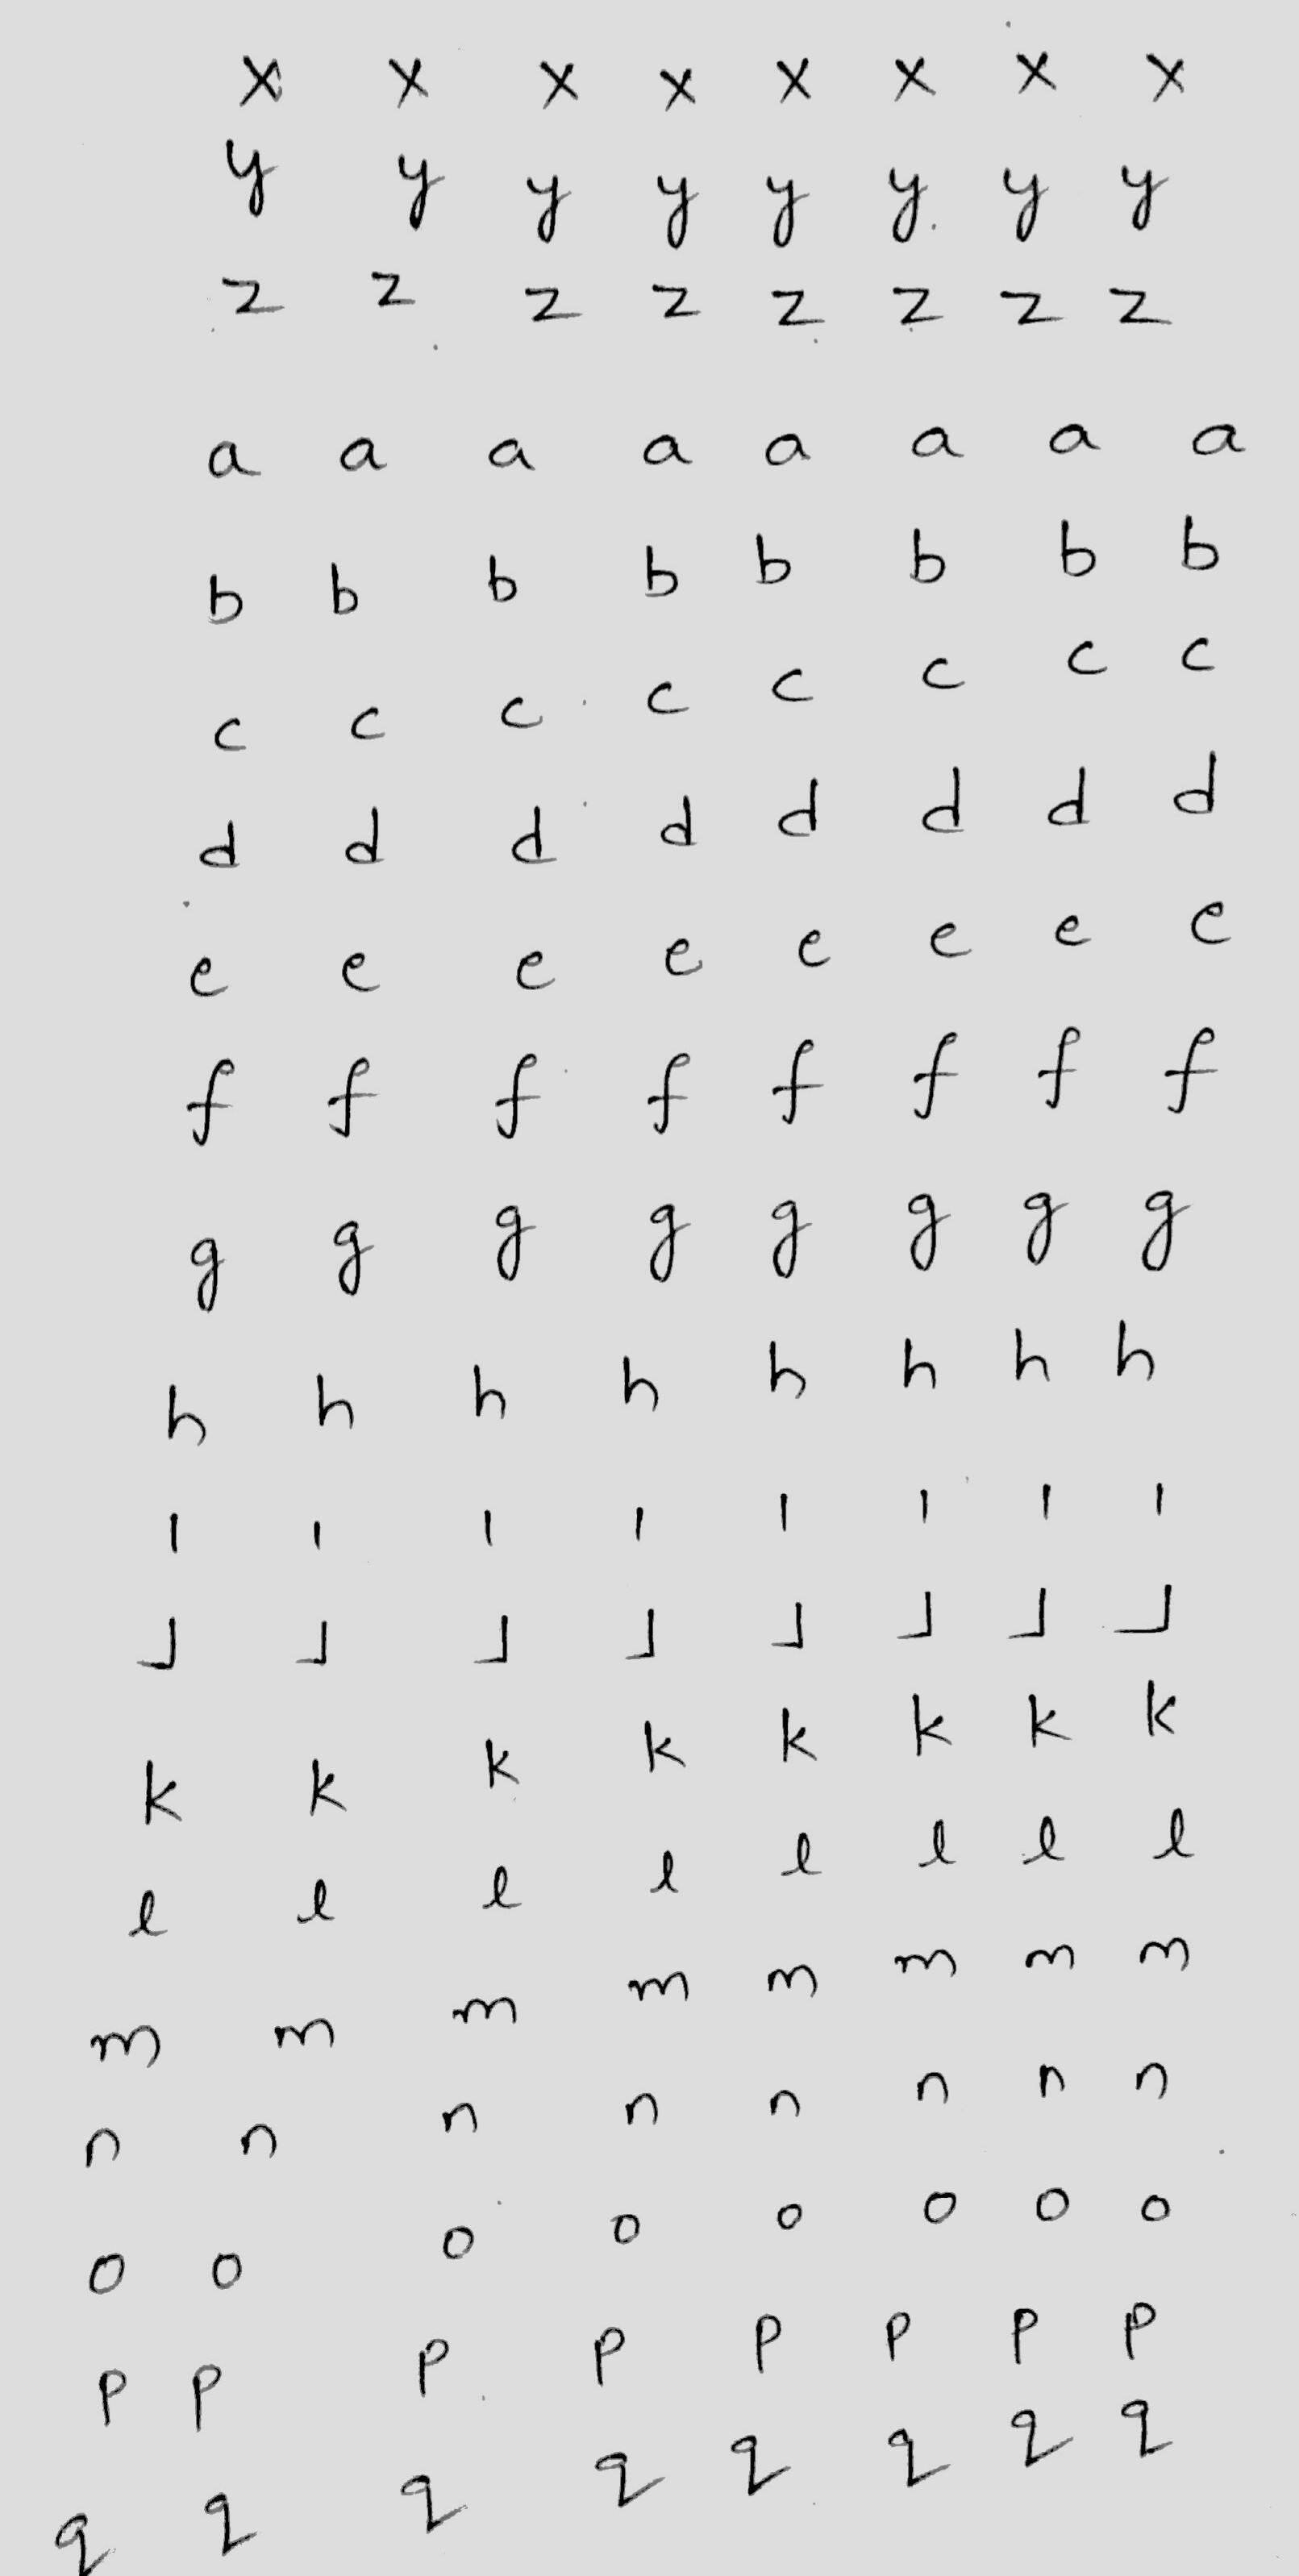 x x x x x x x x
y y y y y y y y
z z z z z z z z
a a a a a a a a
b b b b b b b b
c c c c c c c c
d d d d d d d d
e e e e e e e e
f f f f f f f f
g g g g g g g g
h h h h h h h h
ı ı ı ı ı ı ı ı
ȷ ȷ ȷ ȷ ȷ ȷ ȷ ȷ
k k k k k k k k
l l l l l l l l
m m m m m m m m
n n n n n n n n
o o o o o o o o
p p p p p p p p
q q q q q q q q